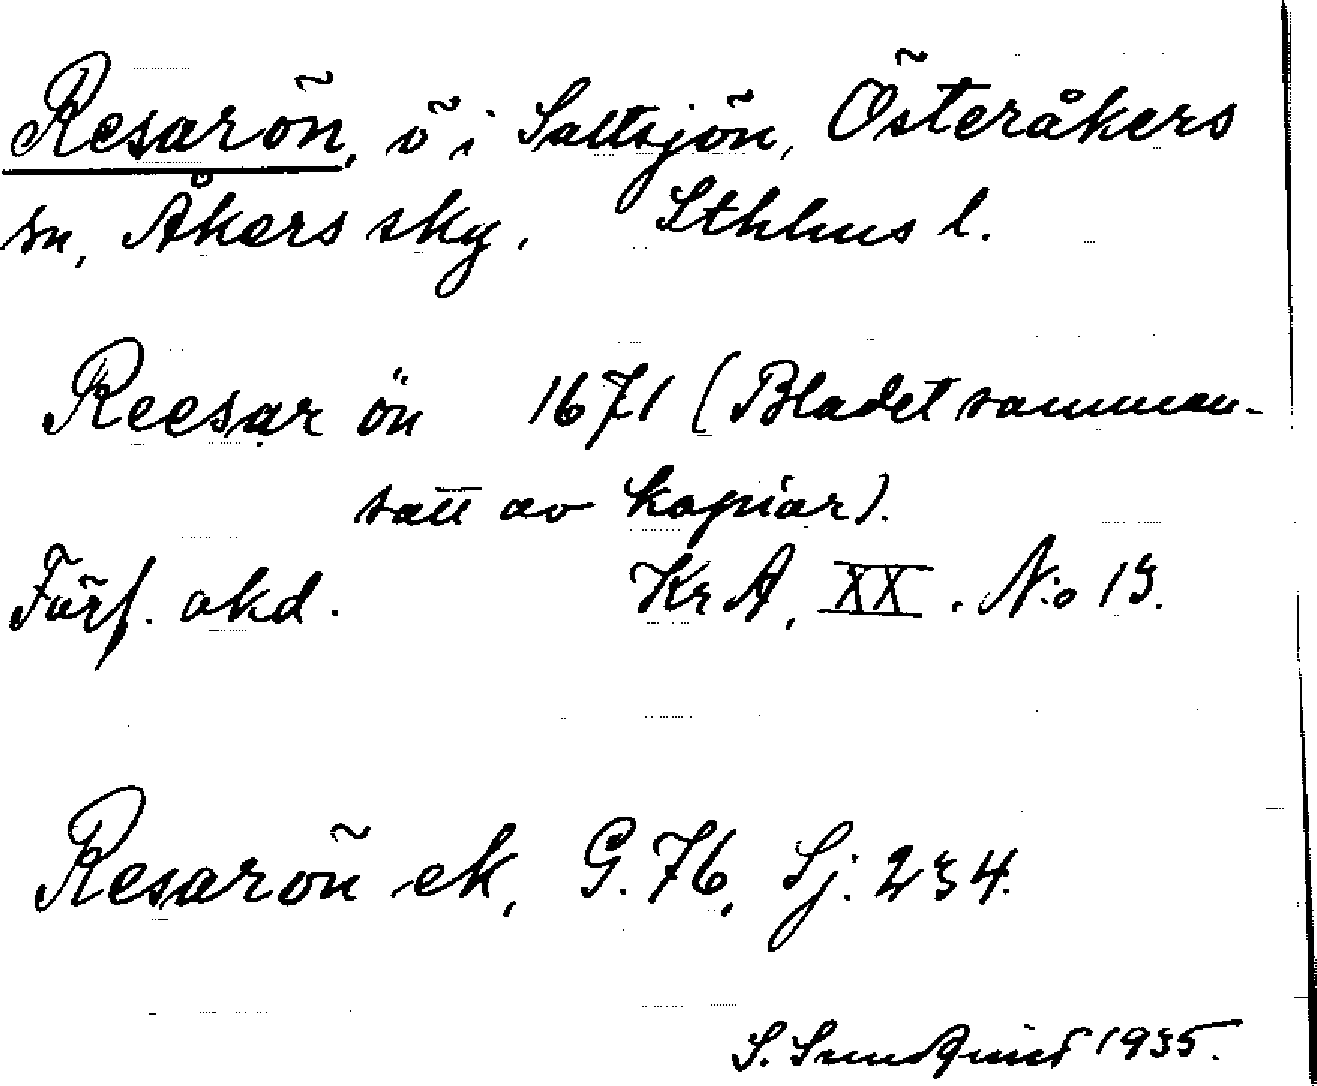 Resarön, ö i Saltsjön, Österåkers
sn, Åkers sky. Sthlms l.
Reesar ön 1671 (Bladet samman-
satt av kopiar).
Förf. okd. Kr A, XX. N:o 13.
Resarön ek, G. 76, Sj. 234.
S. Sundquist 1935.